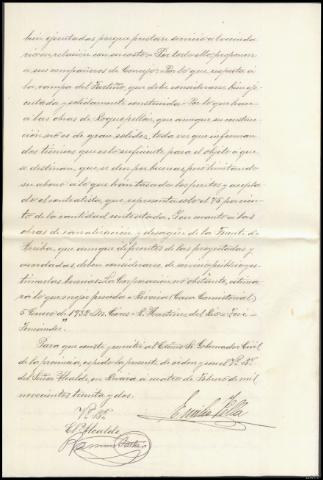 bien ejecutadas porque prestan servicio al vecinda-
rio en relación con su costo. Por todo ello proponen
a sus compañeros de Consejo: Por lo que respecta a
la rampa del Pasti��o, que debe considerarse bien eje-
cutada y solidamente construida. Por lo que hace
a las obras de Roupellán, que aunque su construc-
ción no es de gran solidez, toda vez que informan
dos técnicos que es lo suficiente para el objeto a que
se destinan, que se den por buenas pero limitando
su abono a lo que han tasado los peritos y acepta-
do el contratista, que representa solo el 75 por cien-
to de la cantidad contratada. Por cuanto a las
obras de canalización y desagüe de la Fuente de
Arriba, que aunque diferentes de las proyectadas y
acordadas, deben considerarse de servicio público y es-
timarlas buenas. La Corporación, no obstante, estima-
rá lo que mejor proceda. Riveira (Casa Consistorial)
5 Enero de 1932. M. Cons. R. Martínez del Río. José
Fernández"
Para que conste y remitir al Excmo. Sr. Gobernador Civil
de la provincia, expido la presente de orden y con el Vº Bº
del Señor Alcalde, en Riveira a cuatro de Febrero de mil
novecientos treinta y dos.
Vº Bº
El Alcalde